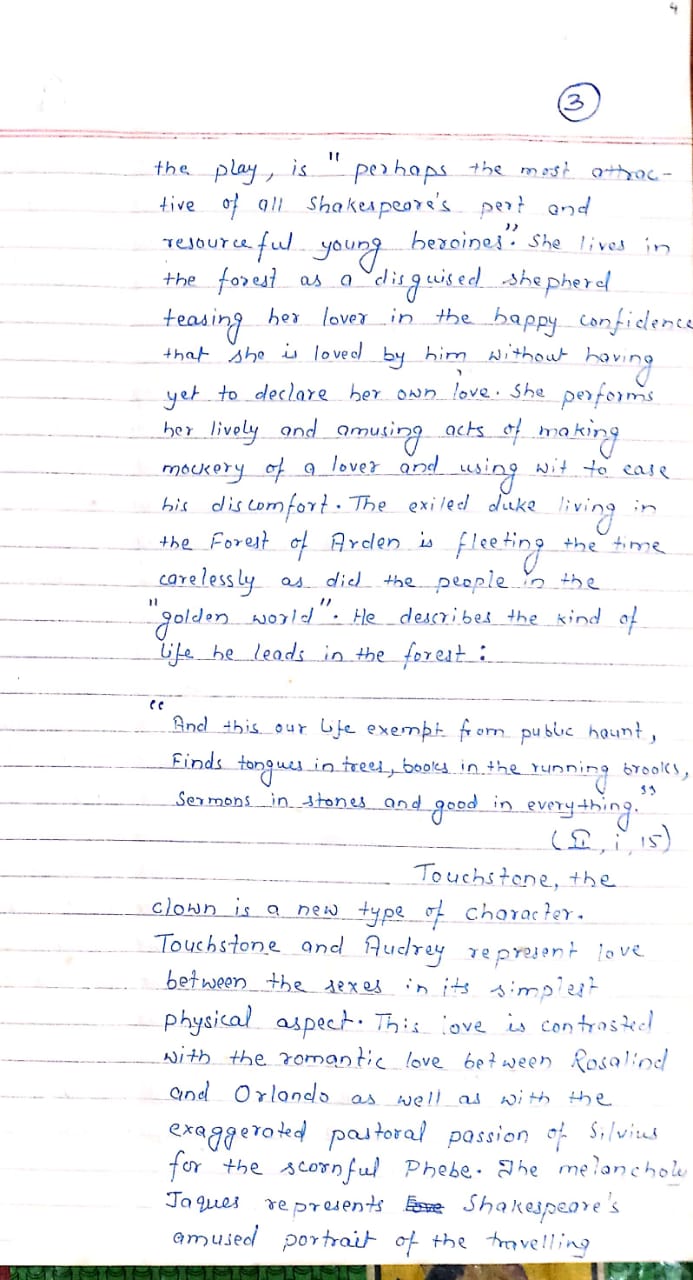 4
3
the play, is " perhaps the most attrac-
tive of all Shakespeare's pert and
resourceful young heroines". She lives in
the forest as a disguised shepherd
teasing her lover in the happy confidence
that she is loved by him without having
yet to declare her own love. She performs
her lively and amusing acts of making
mockery of a lover and using wit to ease
his discomfort. The exiled duke living in
the Forest of Arden is fleeting the time
carelessly as did the people in the
"golden world". He describes the kind of
life he leads in the forest :
"And this our life exempt from public haunt,
Finds tongues in trees, books in the running brooks,
Sermons in stones and good in everything."
(II, i, 15)
Touchstone, the
clown is a new type of character.
Touchstone and Audrey represent love
between the sexes in its simplest
physical aspect. This love is contrasted
with the romantic love between Rosalind
and Orlando as well as with the
exaggerated pastoral passion of Silvius
for the scornful Phebe. The melancholy
Jaques represents Shakespeare's
amused portrait of the travelling